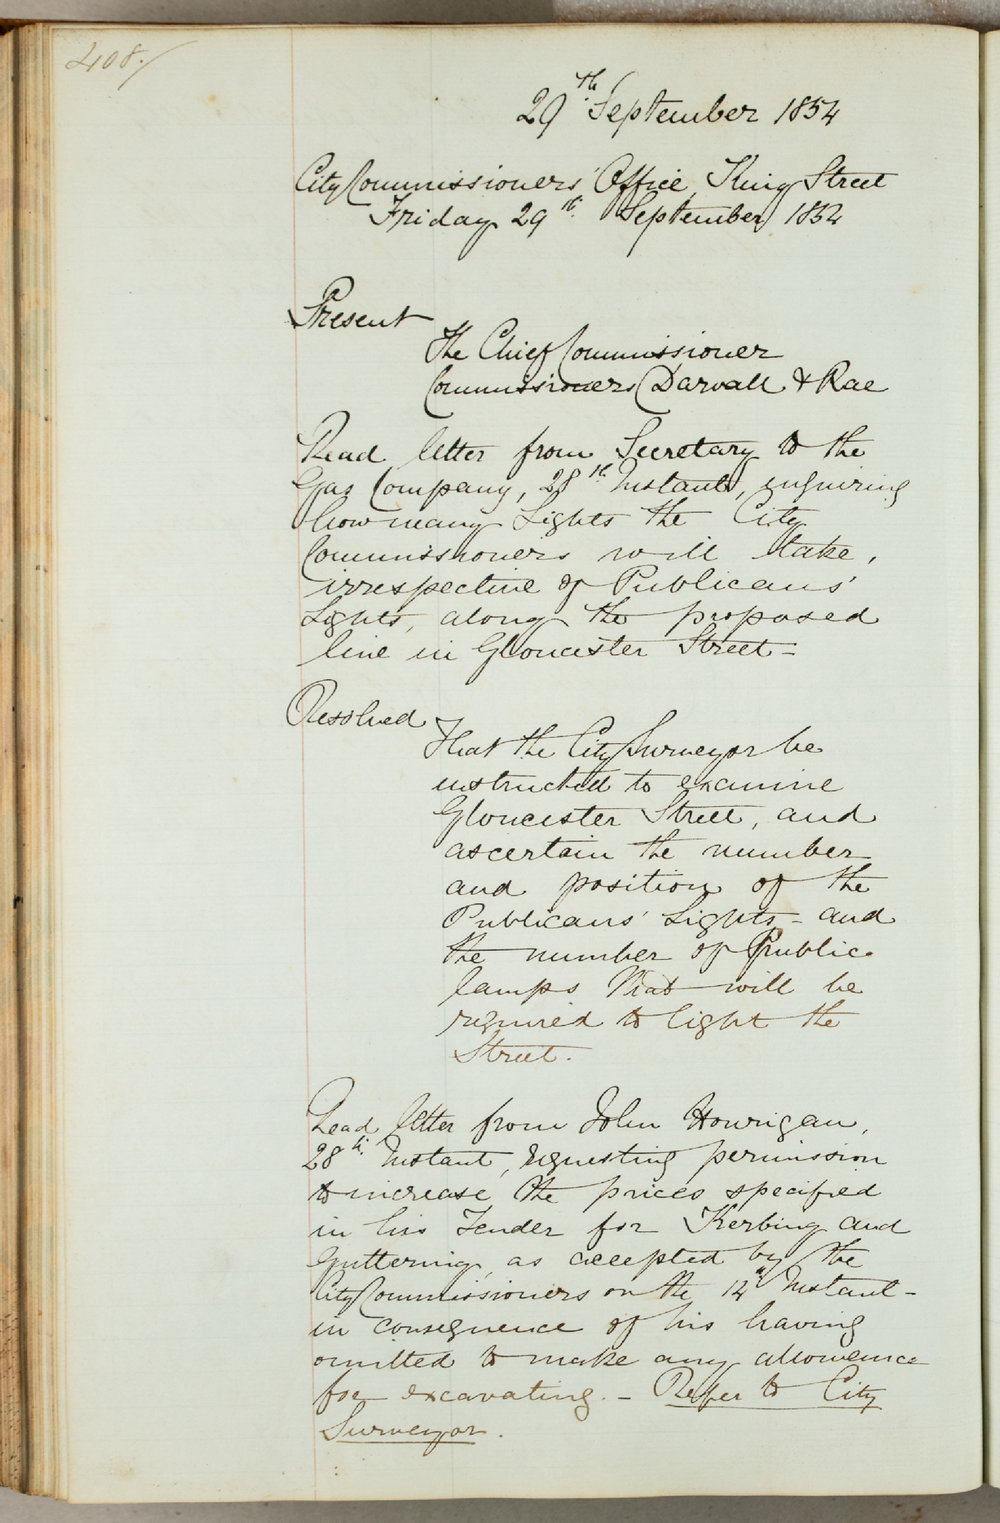 408./
29th September 1854
City Commissioners' Office, King Street
Friday 29th September 1854
Present
The Chief Commissioner
Commissioners Darvall & Rae
Read letter from Secretary to the
Gas Company, 28th Instant, inquiring
how many Lights the City
Commissioners will take,
irrespective of Publicans'
Lights, along the proposed
line in Gloucester Street -
Resolved
That the City Surveyor be
instructed to examine
Gloucester Street, and
ascertain the number
and position of the
Publicans' Lights - and
the number of public
lamps that will be
required to light the
Street.
Read letter from John Hourigan,
28th Instant, requesting permission
to increase the prices specified
in his Tender for Kerbing and
Guttering, as accepted by the
City Commissioners on the 14th Instant -
in consequence of his having
omitted to make any allowance
for excavating. - Refer to City
Surveyor.